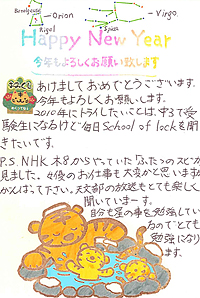 Betelgeuse
Orion
Rigel
Virgo
Spica
Happy New Year
今年もよろしくお願い致します
あけましておめでとうございます。
今年もよろしくお願いします。
2010年にトライしたいことは、中3で受
験生になるけど毎日School of lockを聞
きたいです。
P.S. NHK 木8からやっていた「ふたつのスピカ」
見ました。女優のお仕事も大変かと思いますが
がんばって下さい。天文部の放送もとても楽しく
聞いていまーす。
自分も星の事を勉強している
のでとても
勉強になり
ます。